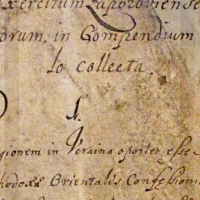 Exercitum Zaporoviense
orum, in Compendium
lo collecta.
1.
gionem in Ucraina oportet esse
thodoxæ Orientalis Confessionis